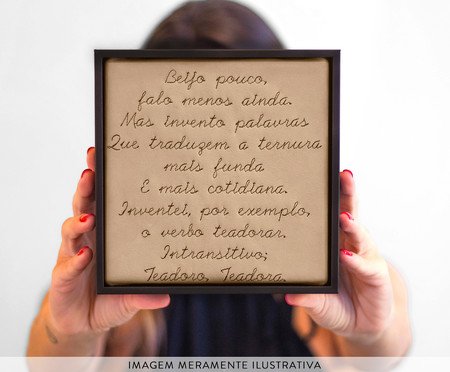 Beijo pouco,
falo menos ainda.
Mas invento palavras
Que traduzem a ternura
mais funda
E mais cotidiana.
Inventei, por exemplo,
o verbo teadorar.
Intransitivo;
Teadoro, Teadora.
IMAGEM MERAMENTE ILUSTRATIVA